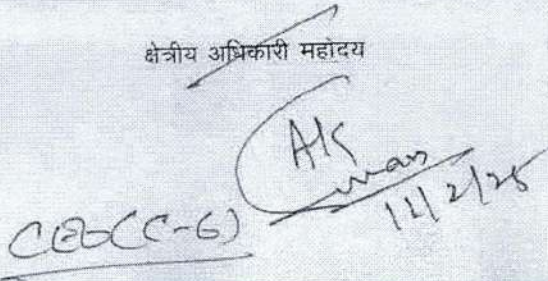 क्षेत्रीय अधिकारी महोदय
AK
11/2/25
CEO(C-6)